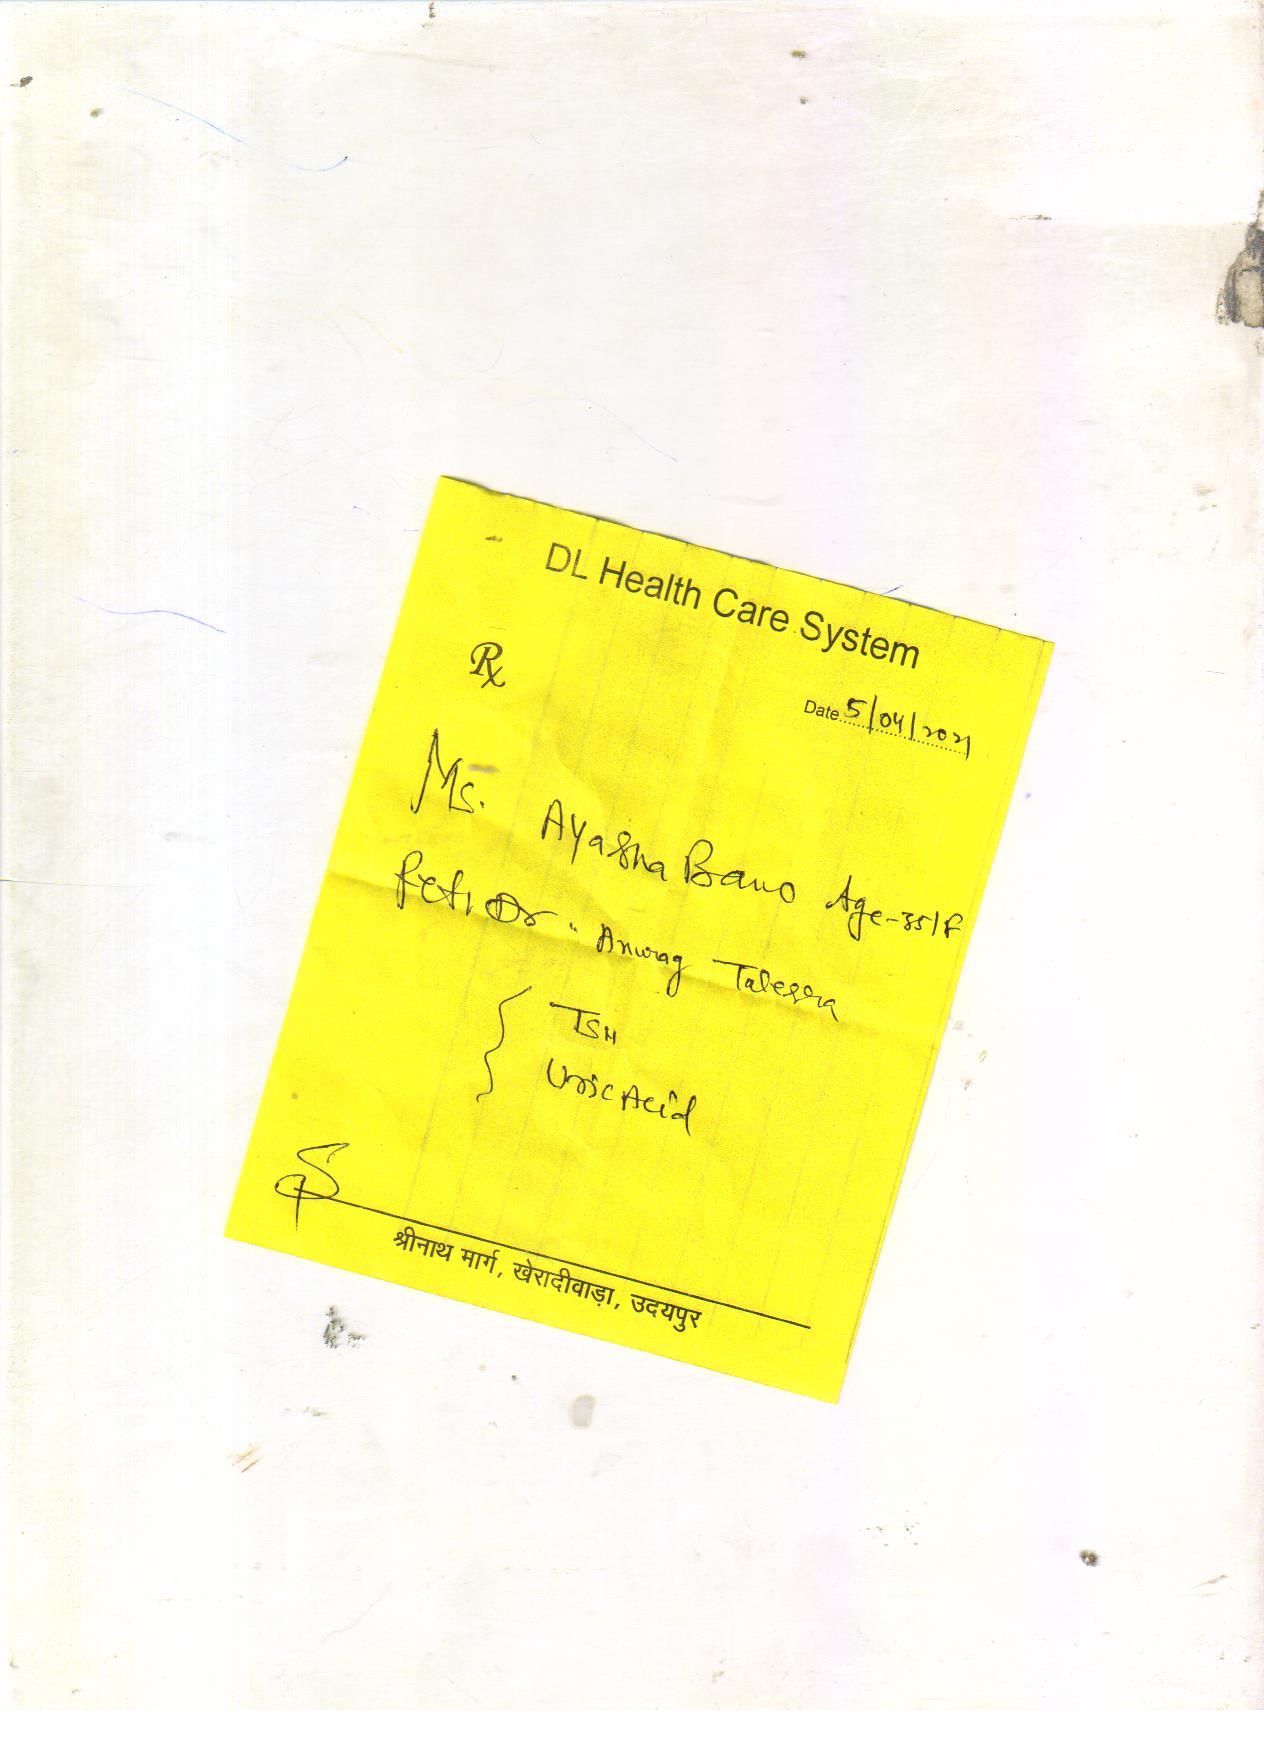 DL Health Care System
Rx
Date 5/04/2021
Ms. Ayasha Bano Age-35/F
Ref. Dr. Anurag Talesra
TSH
Uric Acid
श्रीनाथ मार्ग, खेरादीवाड़ा, उदयपुर